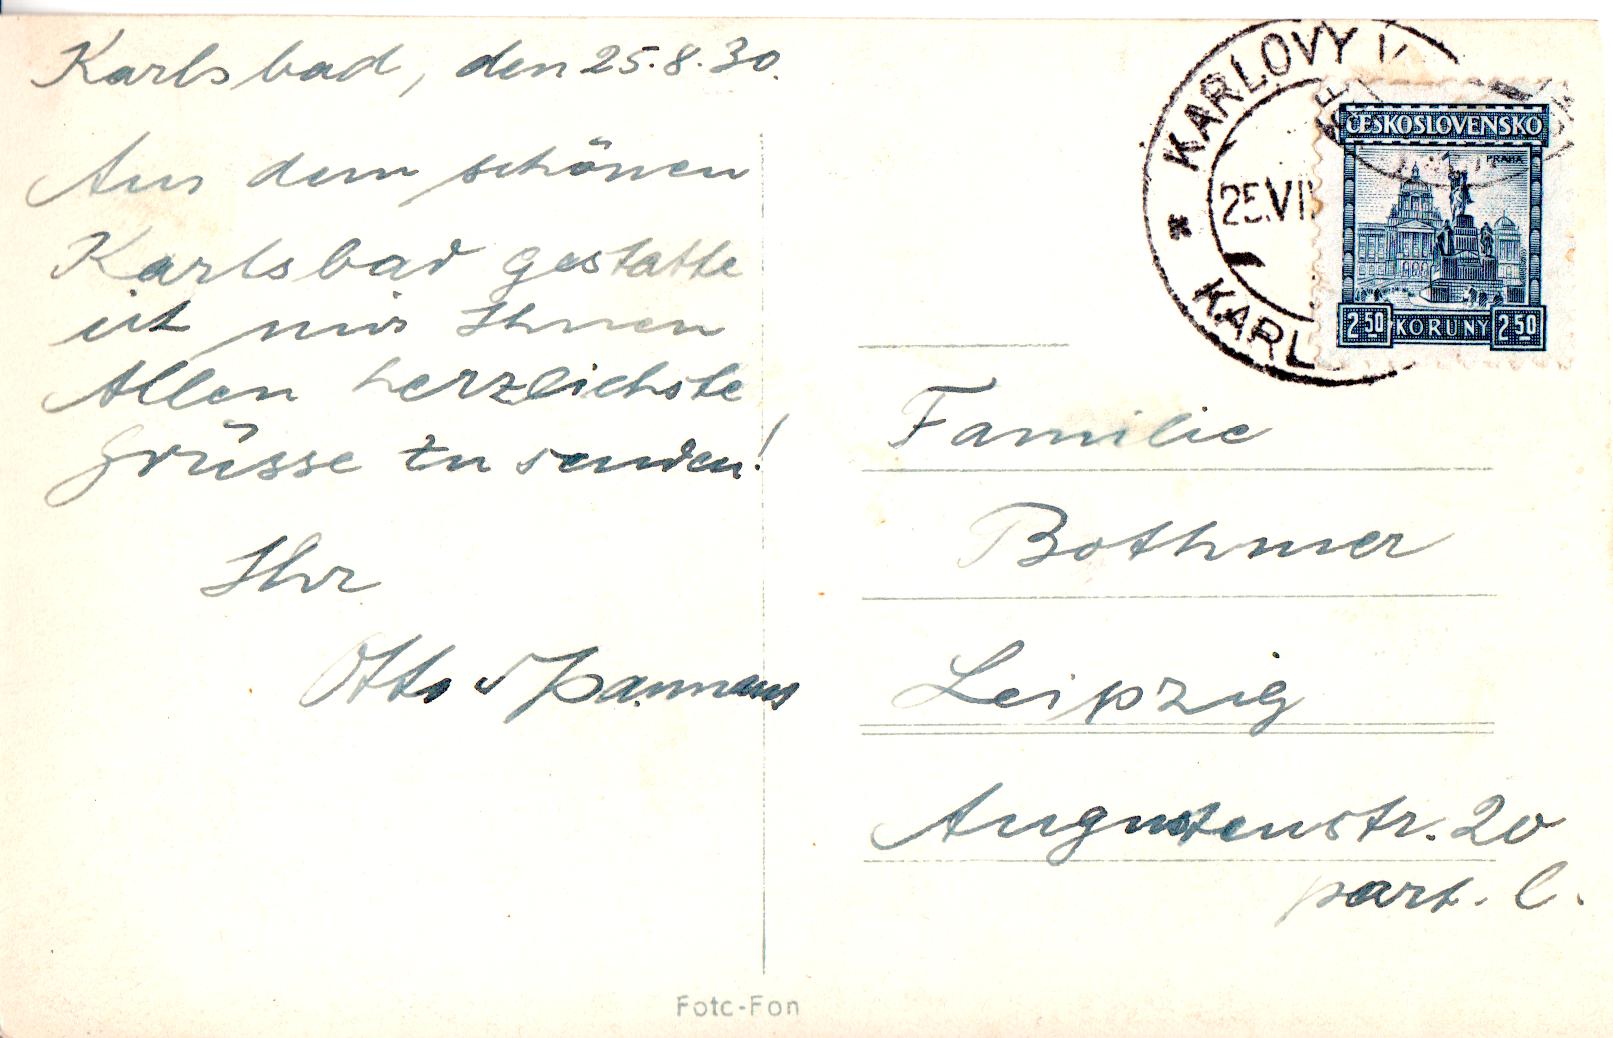 Karlsbad, den 25.8.30.
Aus dem schönen
Karlsbad gestatte
ich mir Ihnen
Allen herzlichste
Grüsse zu senden!
Ihr
Otto
KARLOVY V
25.VI
KARL
ČESKOSLOVENSKO
PRAHA
2·50 KORUNY 2·50
Familie
Bothmer
Leipzig
Augustenstr. 20
part. l.
Foto-Fon